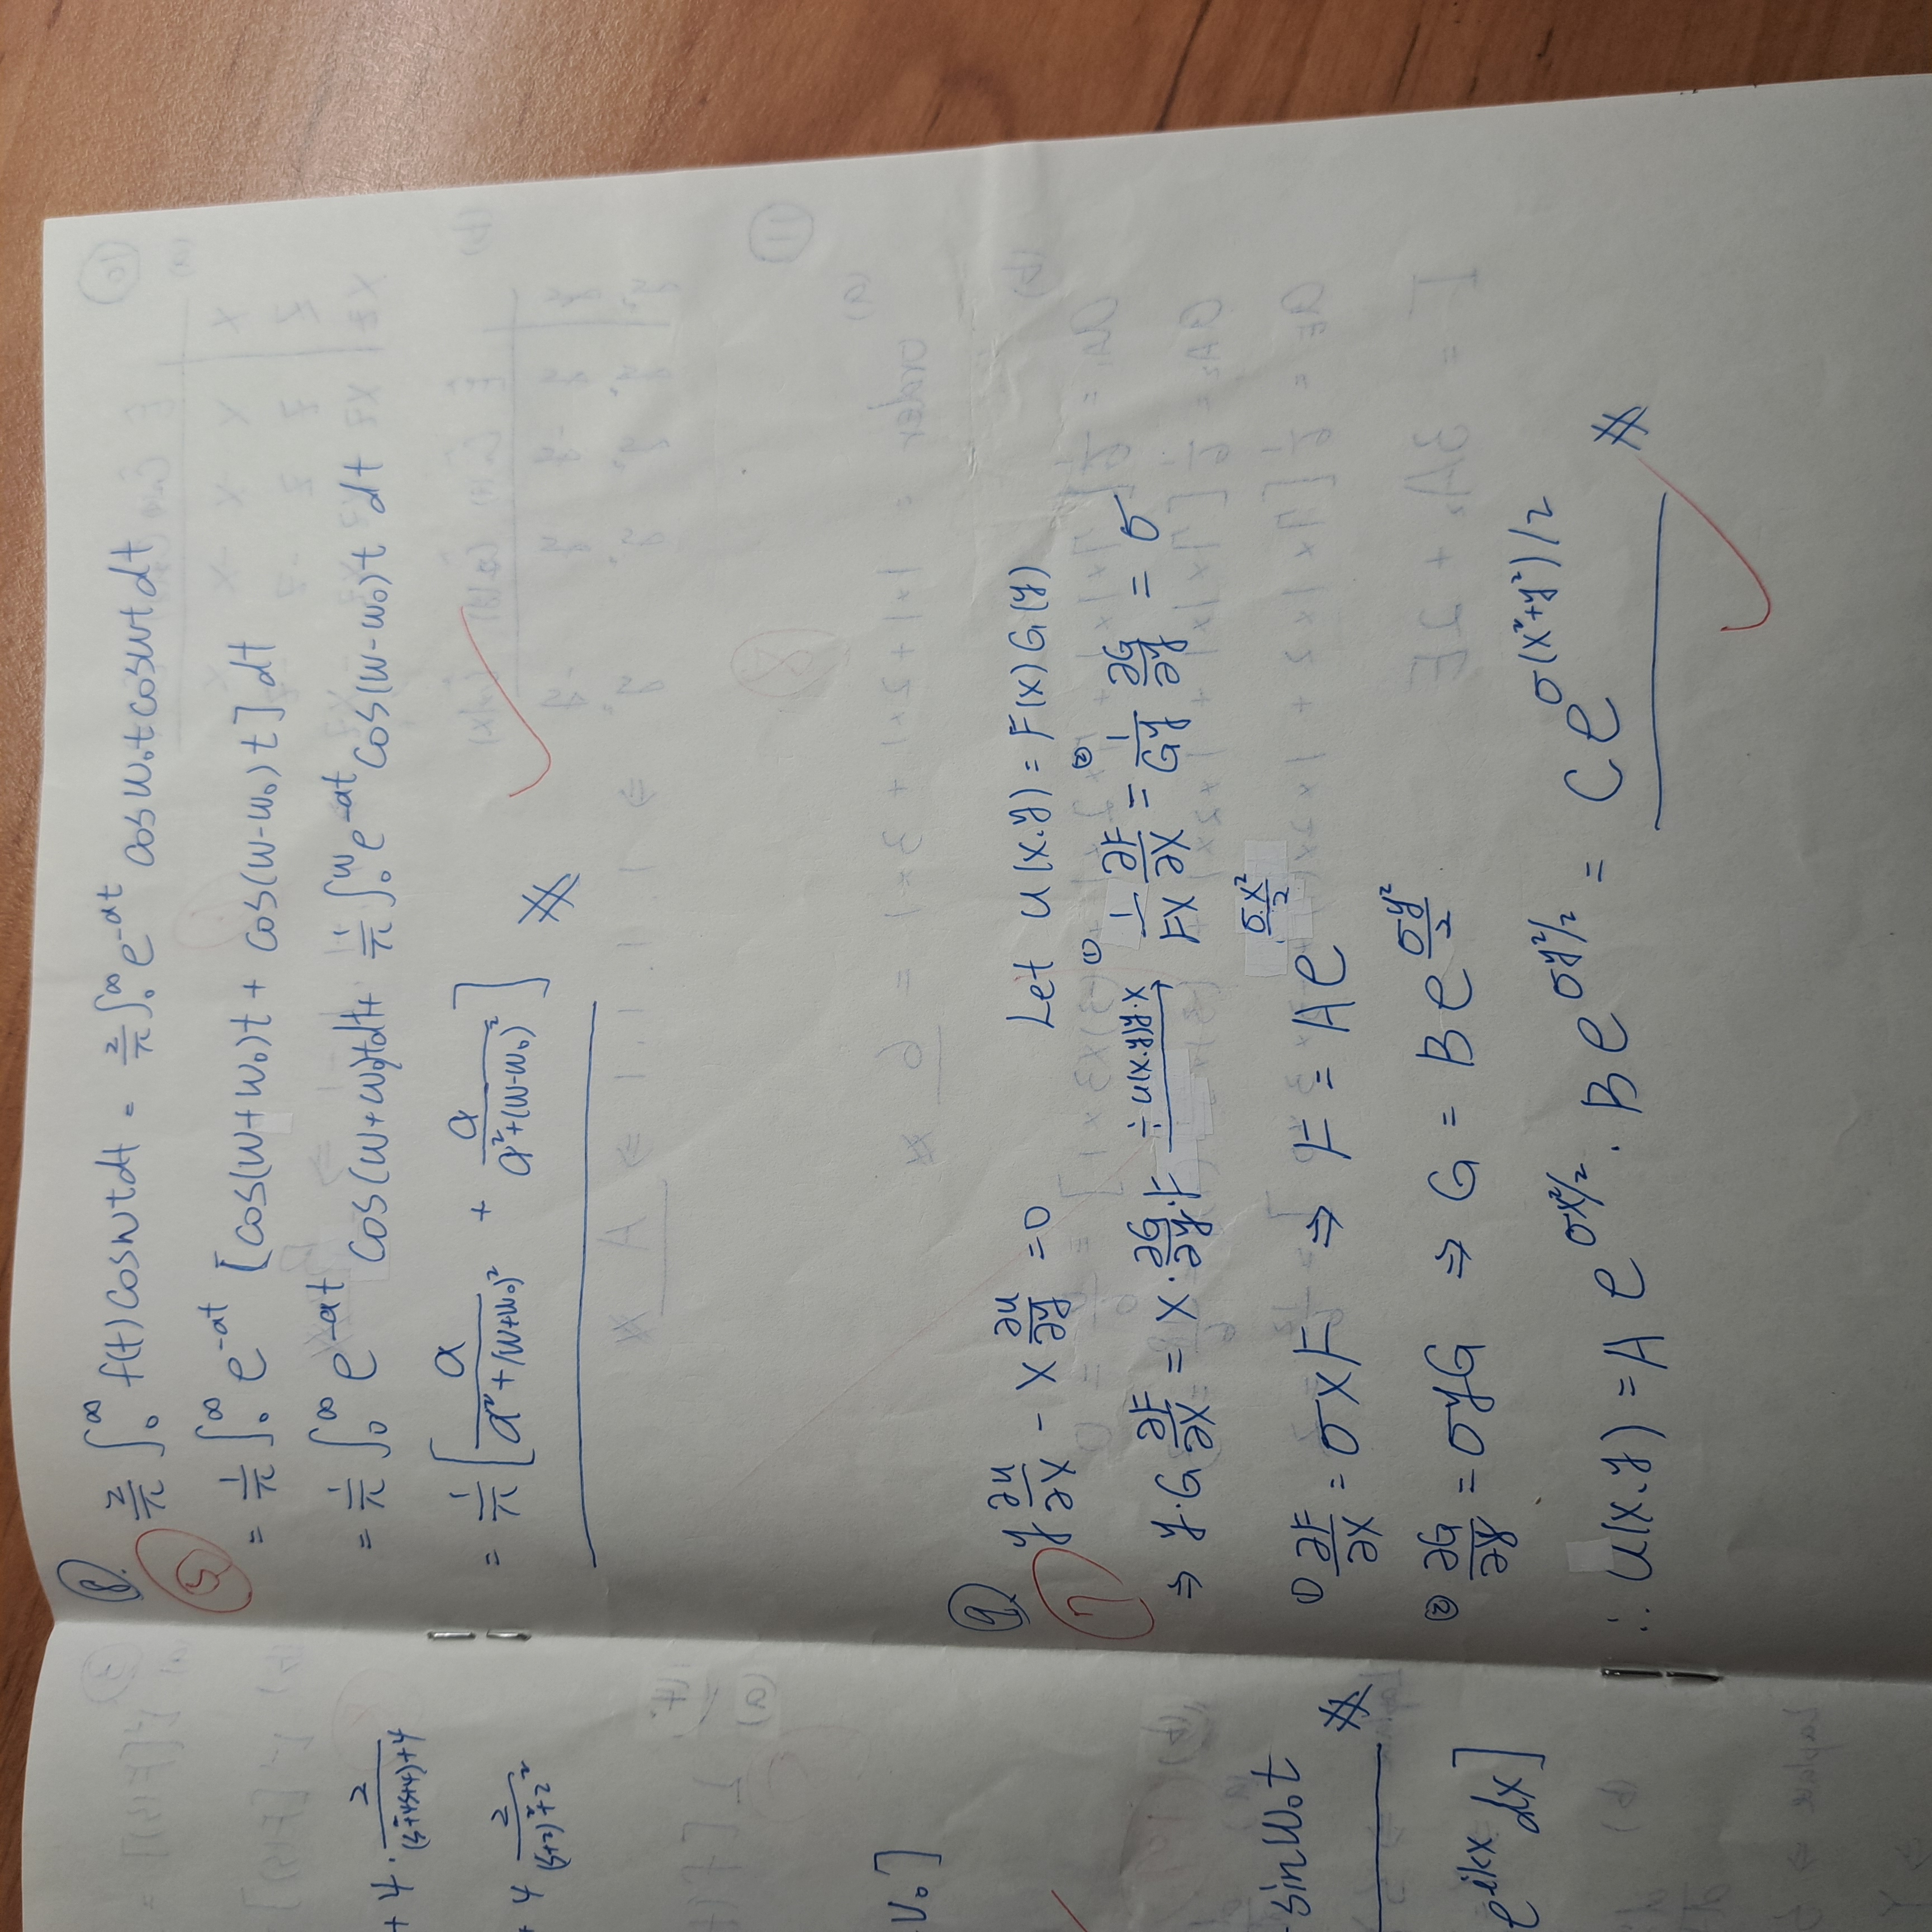 + 4 · 2/((s²+4s+4)+4)
+ 4 2/((s+2)²+2²)
w₀ ]
sinw₀t
#
e^{-ikx} dx ]
8.
5
2/π ∫₀^∞ f(t) cosωt dt = 2/π ∫₀^∞ e^{-at} cos ω₀t cosωt dt
= 1/π ∫₀^∞ e^{-at} [cos(ω+ω₀)t + cos(ω-ω₀)t] dt
= 1/π ∫₀^∞ e^{-at} cos(ω+ω₀)t dt + 1/π ∫₀^∞ e^{-at} cos(ω-ω₀)t dt
= 1/π [ a/(a²+(ω+ω₀)²) + a/(a²+(ω-ω₀)²) ] #
9.
7
y ∂u/∂x - x ∂u/∂y = 0 Let u(x.y) = F(x)G(y)
⇒ y·G ∂F/∂x = x·∂G/∂y·F ÷u(x.y)y.x → ① 1/Fx ∂F/∂x = ② 1/Gy ∂G/∂y = σ
① ∂F/∂x = σxF ⇒ F = A e^{σx²/2}
② ∂G/∂y = σyG ⇒ G = B e^{σy²/2}
∴ u(x.y) = A e^{σx²/2} · B e^{σy²/2} = C e^{σ(x²+y²)/2} #